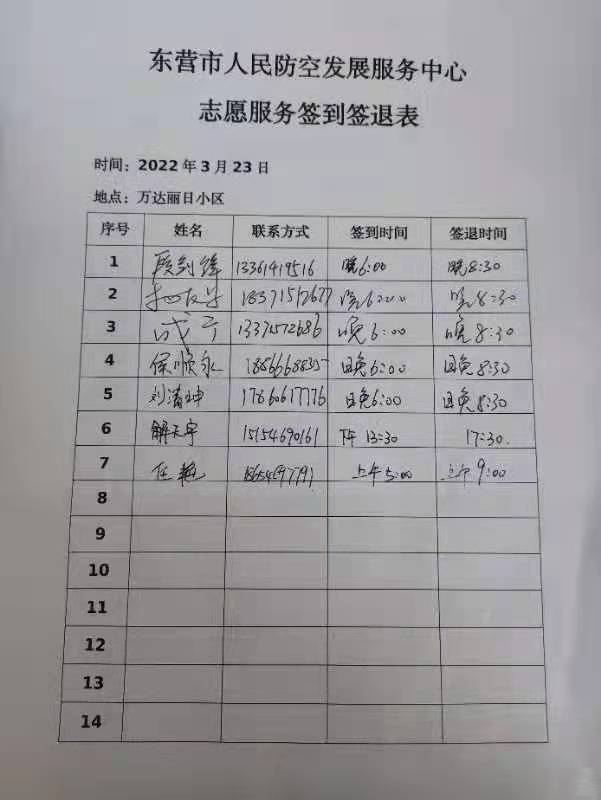 东营市人民防空发展服务中心
志愿服务签到签退表
时间：2022年3月23日
地点：万达丽日小区
序号 姓名 联系方式 签到时间 签退时间
1 段剑锋 13361419516 晚6:00 晚8:30
2 晚6:00 晚8:30
3 成了 13371572686 晚6:00 晚8:30
4 保顺永 晚6:00 晚8:30
5 刘清坤 17860617776 晚6:00 晚8:30
6 解天宇 15154690161 下午13:30 17:30.
7 任艳 上午5:00 上午9:00
8
9
10
11
12
13
14